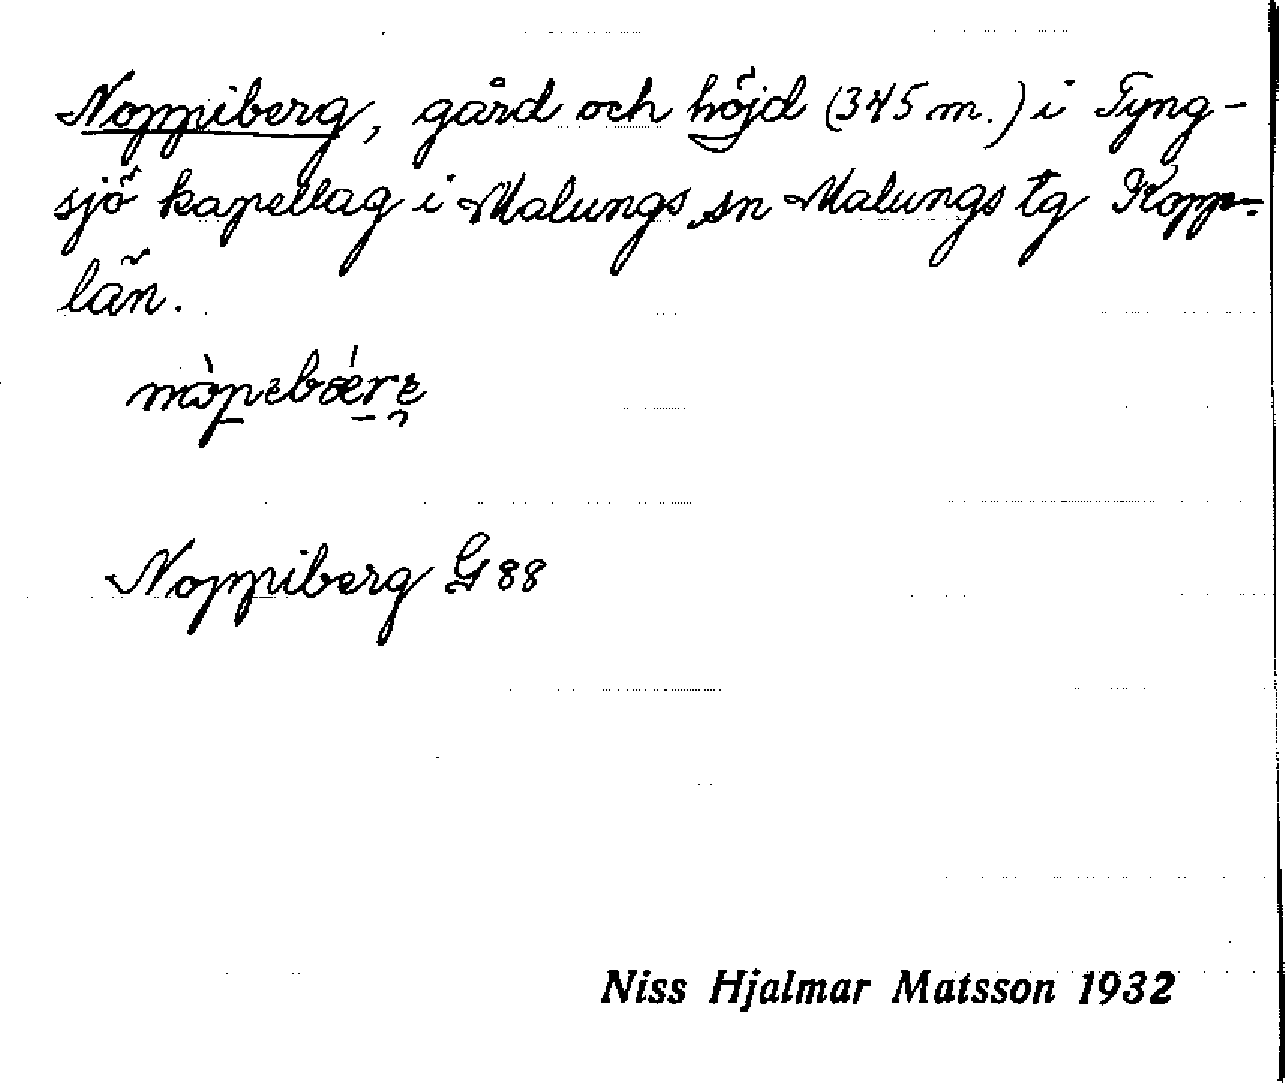 Noppiberg, gård och höjd (345 m.) i Tyng-
sjö kapellag i Malungs sn Malungs tg Kopp.
län.
Noppiberg G 88
Niss Hjalmar Matsson 1932